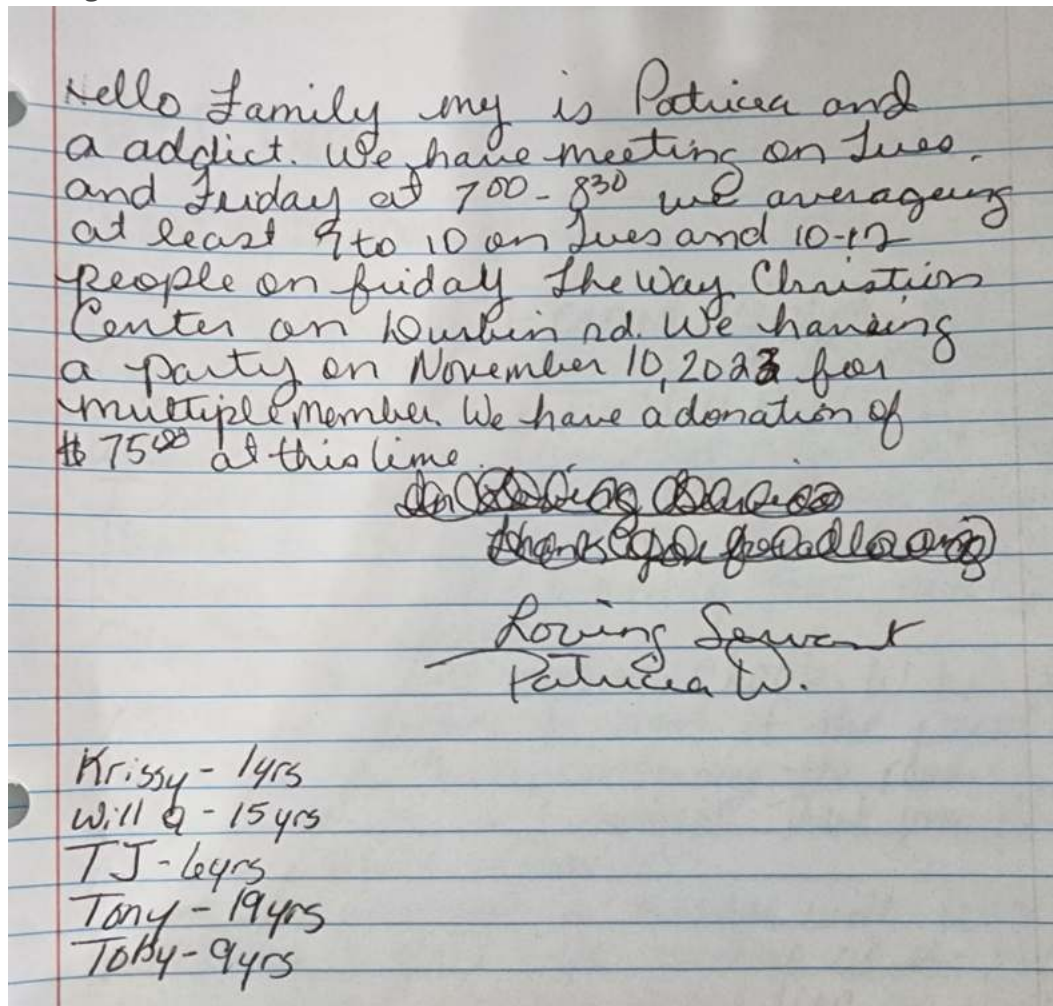 Hello Family my is Patricia and
a addict. We have meeting on Tues.
and Friday at 700 - 830 we averageing
at least 9 to 10 on Tues and 10-12
people on friday The Way Christian
Center on Durbin rd. We haveing
a party on November 10, 2023 for
multiple member. We have a donation of
$ 7500 at this time.
thank you for allowing
Loving Servant
Patricia W.
Krissy - 1yrs
Will Q - 15 yrs
TJ - 6yrs
Tony - 19 yrs
Toby - 9yrs